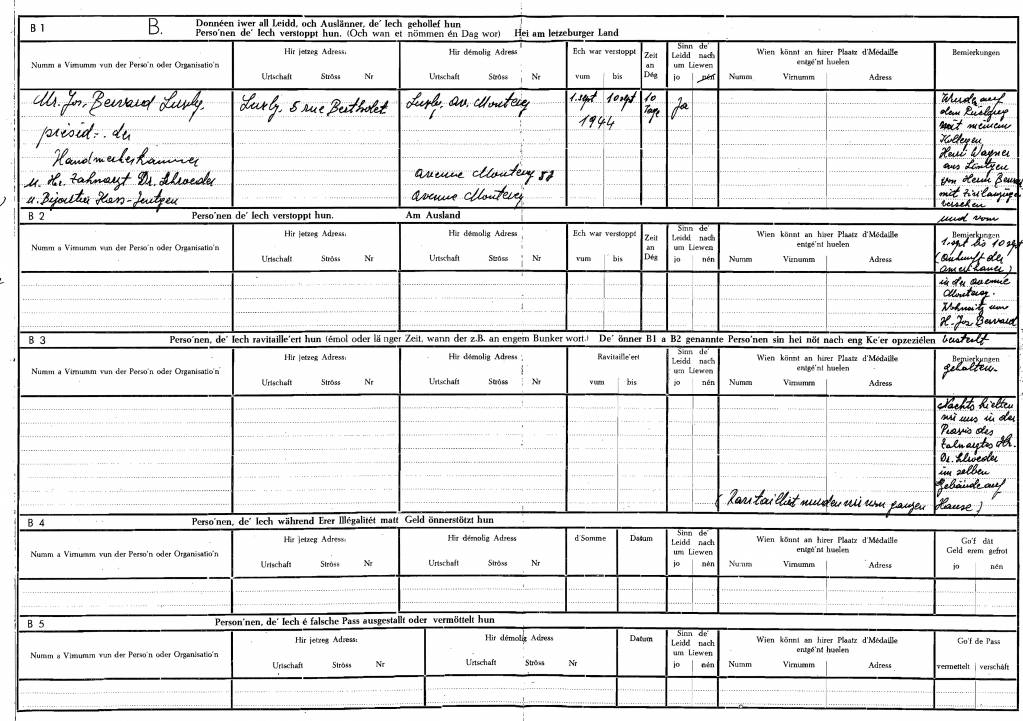 B 1 B. Donnéen iwer all Leidd, och Auslänner, de' Iech gehollef hun
Perso'nen de' Iech verstoppt hun. (Och wan et nömmen én Dag wor) Hei am letzeburger Land
Numm a Virnumm vun der Perso'n oder Organisatio'n
Hir jetzeg Adress:
Urtschaft Ströss Nr
Hir démolig Adress
Urtschaft Ströss Nr
Ech war verstoppt
vum bis
Zeit an Dég
Sinn de' Leidd nach um Liewen
jo nén
Wien könnt an hirer Plaatz d'Médaille entgé'nt huelen
Numm Virnumm Adress
Bemierkungen
Mr. Jos. Luxbg, Luxbg, 5 rue Bertholet Luxbg, av. Monterey 1. sept 10 sept 10 Tage Ja
présid. der 1944
Handwerkerkammer
u. Hr. Zahnarzt Dr. Schroeder avenue Monterey
u. Bijoutier Hass-Jentgen avenue Monterey
Wurde auf
dem Rückzug
mit meinem
Kollegen
Henri Wagner
aus
von Herrn
mit Zivilanzüge
versehen
und vom
1. sept bis 10 sept
(Ankunft der
Amerikaner)
in der avenue
Monterey.
Wohnsitz von
H. Jos
versteckt
gehalten.
Nachts hielten
wir uns in der
Praxis des
Zahnarztes Hr.
Dr. Schroeder
im selben
Gebäude auf
(Ravitailliert wurden wir vom ganzen Hause)
B 2 Perso'nen de' Iech verstoppt hun. Am Ausland
Numm a Virnumm vun der Perso'n oder Organisatio'n
Hir jetzeg Adress:
Urtschaft Ströss Nr
Hir démolig Adress
Urtschaft Ströss Nr
Ech war verstoppt
vum bis
Zeit an Dég
Sinn de' Leidd nach um Liewen
jo nén
Wien könnt an hirer Plaatz d'Médaille entgé'nt huelen
Numm Virnumm Adress
Bemierkungen
B 3 Perso'nen, de' Iech ravitaille'ert hun (émol oder länger Zeit, wann der z.B. an engem Bunker wort.) De' önner B1 a B2 genannte Perso'nen sin hei nöt nach eng Ke'er opzeziélen
Numm a Virnumm vun der Perso'n oder Organisatio'n
Hir jetzeg Adress:
Urtschaft Ströss Nr
Hir démolig Adress
Urtschaft Ströss Nr
Ravitaille'ert
vum bis
Sinn de' Leidd nach um Liewen
jo nén
Wien könnt an hirer Plaatz d'Médaille entgé'nt huelen
Numm Virnumm Adress
Bemierkungen
B 4 Perso'nen, de' Iech während Erer Illégalitét matt Geld önnerstötzt hun
Numm a Virnumm vun der Perso'n oder Organisatio'n
Hir jetzeg Adress:
Urtschaft Ströss Nr
Hir démolig Adress
Urtschaft Ströss Nr
d'Somme
Datum
Sinn de' Leidd nach um Liewen
jo nén
Wien könnt an hirer Plaatz d'Médaille entgé'nt huelen
Numm Virnumm Adress
Go'f dât Geld erem gefrot
jo nén
B 5 Person'nen, de' Iech é falsche Pass ausgestallt oder vermöttelt hun
Numm a Virnumm vun der Perso'n oder Organisatio'n
Hir jetzeg Adress:
Urtschaft Ströss Nr
Hir démolig Adress
Urtschaft Ströss Nr
Datum
Sinn de' Leidd nach um Liewen
jo nén
Wien könnt an hirer Plaatz d'Médaille entgé'nt huelen
Numm Virnumm Adress
Go'f de Pass
vermettelt verschâft